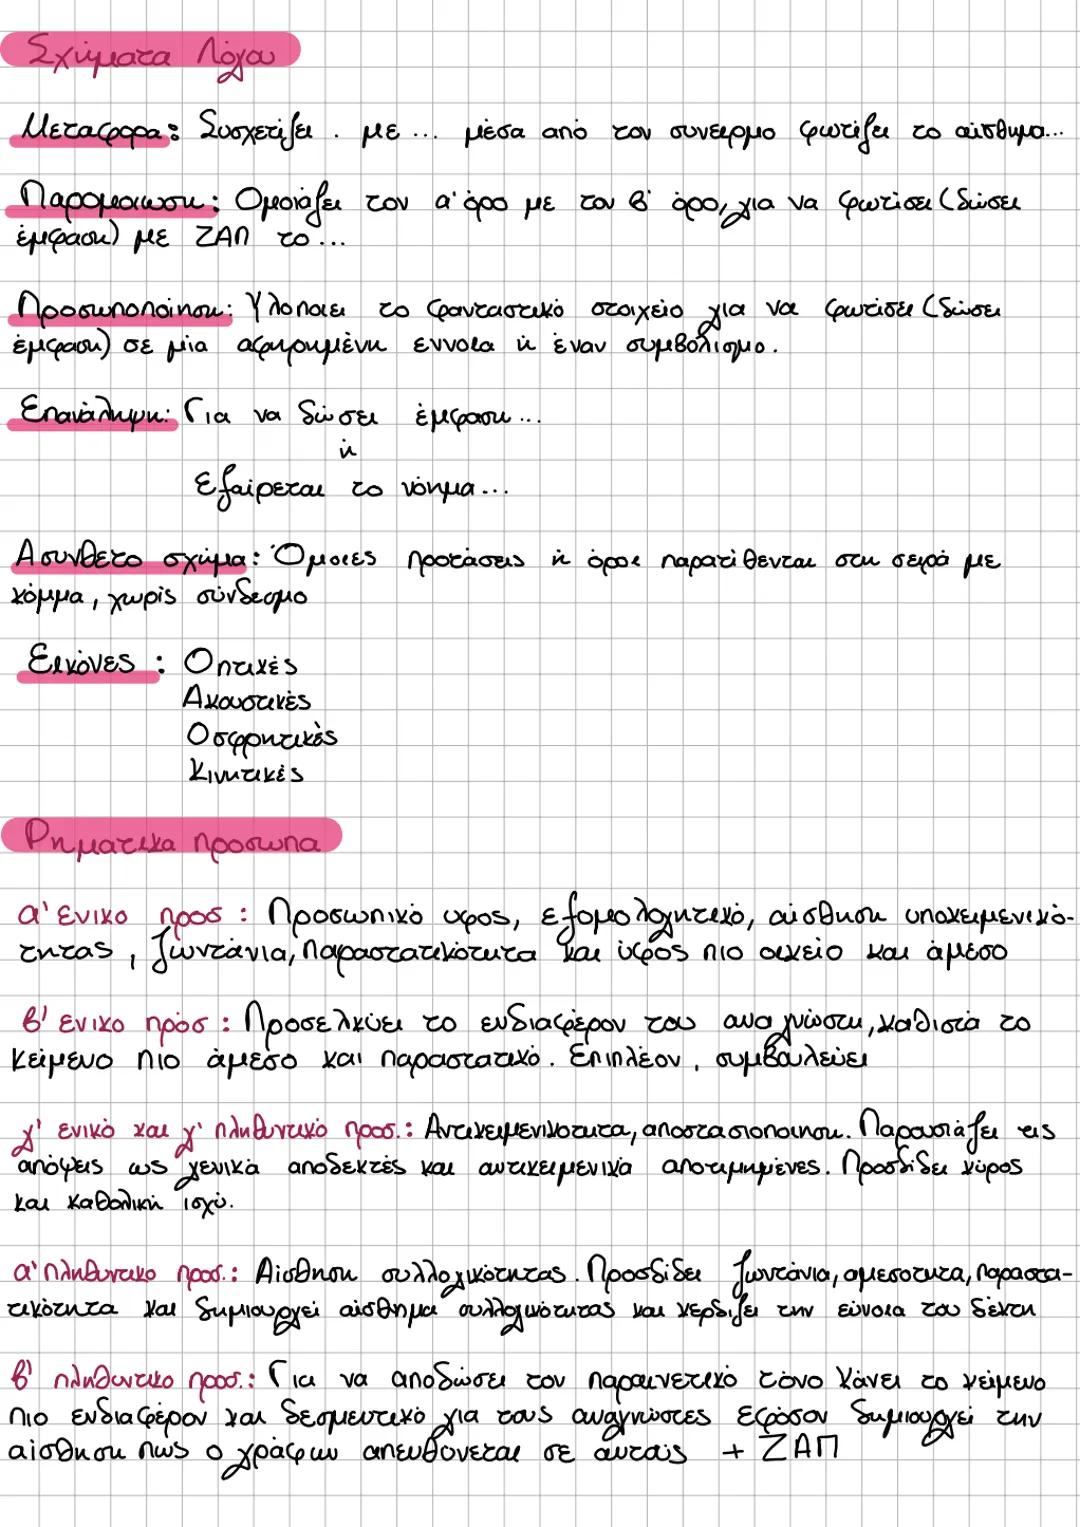 Σχήματα Λόγου
Μεταφορα: Συσχετίζει . με ... μέσα από τον συνειρμο φωτίζει το αίσθημα...
Παρομοιωση: Ομοιάζει τον α' όρο με τον β' όρο, για να φωτίσει (δώσει
έμφαση) με ΖΑΠ το ...
Προσωποποίηση: Υλοποιει το φανταστικό στοιχείο για να φωτίσει (δώσει
έμφαση) σε μία αφηρημένη εννοια ή έναν συμβολισμο.
Επανάληψη: Για να δώσει έμφαση ...
ή
Εξαίρεται το νόημα ...
Ασυνθετο σχήμα: Όμοιες προτάσεις ή όροι παρατίθενται στη σειρά με
κόμμα, χωρίς σύνδεσμο
Εικόνες : Οπτικές
Ακουστικές
Οσφρητικές
Κινητικές
Ρηματικα προσωπα
α' ενικο προσ : Προσωπικό υφος, εξομολογητικό, αίσθηση υποκειμενικό-
τητας, ζωντάνια, παραστατικότητα και ύφος πιο οικείο και άμεσο
β' ενικο πρόσ : Προσελκύει το ενδιαφέρον του αναγνώστη, καθιστά το
κείμενο πιο άμεσο και παραστατικό. Επιπλέον, συμβουλεύει
γ' ενικό και γ' πληθυντικό προσ.: Αντικειμενικοτητα, αποστασιοποιηση. Παρουσιάζει τις
απόψεις ως γενικά αποδεκτές και αντικειμενικά αποτιμημένες. Προσδίδει κύρος
και καθολική ισχύ.
α' πληθυντικο προσ.: Αίσθηση συλλογικότητας. Προσδίδει ζωντάνια, αμεσοτητα, παραστα-
τικότητα και δημιουργεί αίσθημα συλλογικότητας και κερδίζει την εύνοια του δέκτη
β' πληθυντικο προσ.: Για να αποδώσει τον παραινετικό τόνο κάνει το κείμενο
πιο ενδιαφέρον και δεσμευτικό για τους αναγνώστες εφόσον δημιουργεί την
αίσθηση πως ο γράφων απευθύνεται σε αυτούς + ΖΑΠ